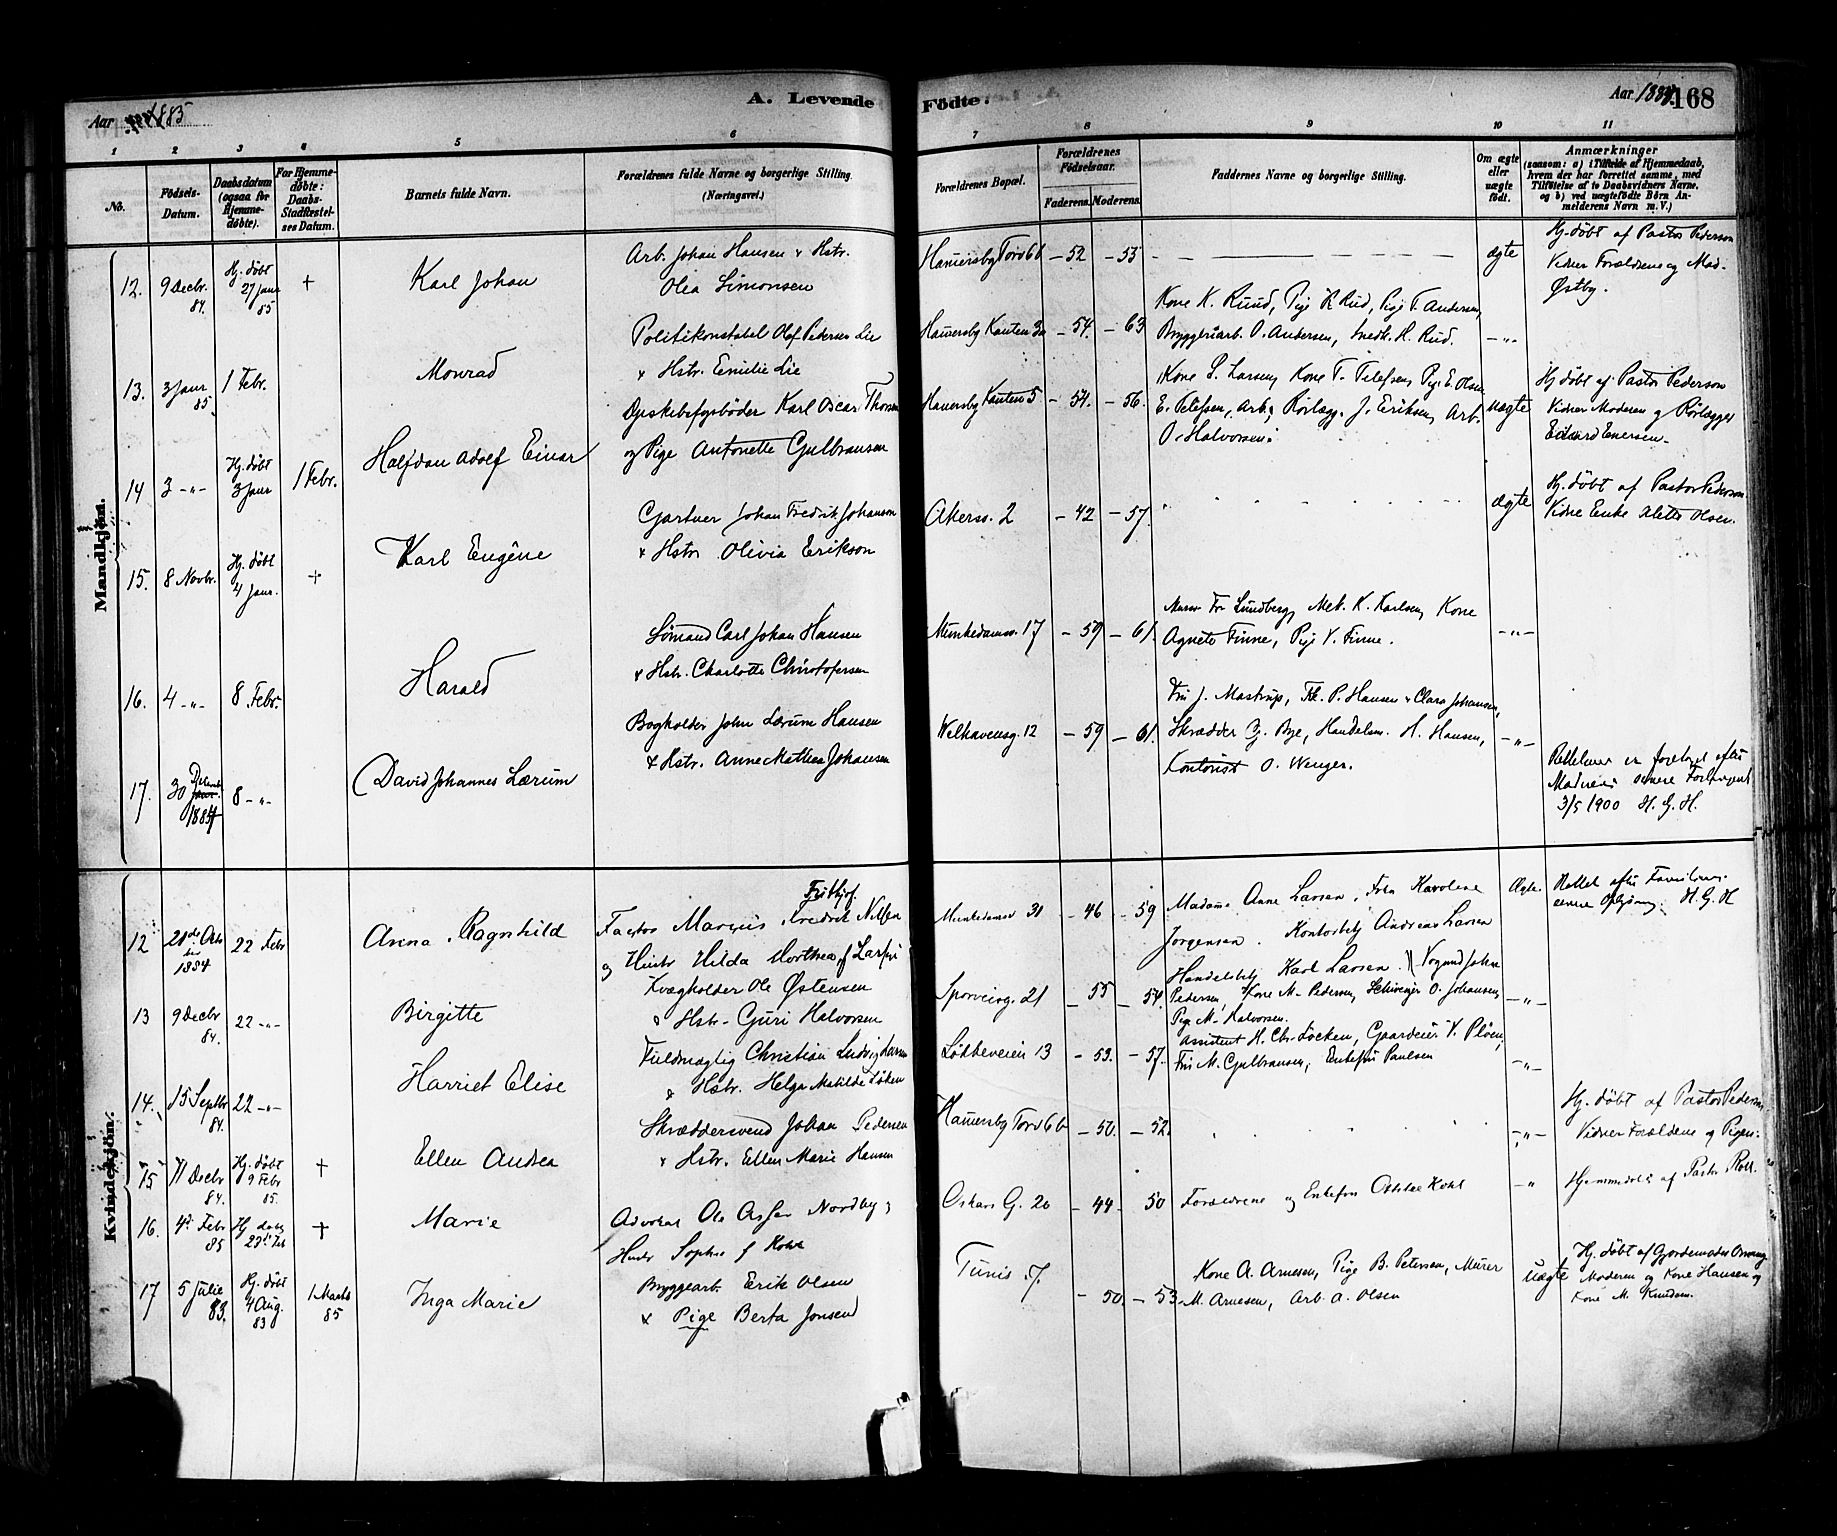 A. Levende Födte.
Aar 1885
Aar 1884. 168
1 2 3 4 5 6 7 8 9 10 11
No.
Födsels-Datum.
Daabsdatum (ogsaa for Hjemme-døbte).
For Hjemme-døbte: Daabs-Stadfæstel-ses Datum.
Barnets fulde Navn.
Forældrenes fulde Navne og borgerlige Stilling. (Næringsvei.)
Forældrenes Bopæl.
Forældrenes Födselsaar.
Faderens. Moderens.
Faddernes Navne og borgerlige Stilling.
Om ægte eller uægte født.
Anmærkninger
(saasom: a) i Tilfælde af Hjemmedaab, hvem der har forrettet samme, med Tilföielse af to Daabsvidners Navne, og b) ved uægtefödte Börn An-melderens Navn m. V.)
Mandkjön.
12. 9 Decbr. 84. Hj. døbt 27 Janr 85 + Karl Johan
Arb. Johan Hansen & Hstr.
Olea Simonsen
Hamersby Torv 6b – 52 – 53 ægte
Hj. døbt af Pastor Pederson
Vidner Forældrene og Mad.
Østby.
13. 3 Janr 85. 1 Febr. Monrad
Politikonstabel Olaf Pedersen Lie
& Hstr. Emilie Lie
– 54. – 63
Kone K. Ruud, Pige R. Rud, Pige T. Andersen,
Bryggeriarb. O. Andersen, Snedk. H. Rud. –„–
14 3 –„– Hj. døbt 3 Janr 1 Febr. Halfdan Adolf Einar
Karl Oscar Thorsen
og Pige Antonette Gulbransen
– 54. – 56.
Kone S. Larsen, Kone T. Tellefsen, Pige E. Olsen
E. Tellefsen, Arb., Rørlægg. J. Eriksen, Arb.
O. Halvorsen. uægte
Hj. døbt af Pastor Pederson
Vidner Moderen og Rørlægger
Edvard Enersen.
15. 8 Novbr. Hj. døbt 4 Janr. + Karl Eugêne
Gartner Johan Fredrik Johansen
& Hstr. Olivia Erikson
Akersv. 2 – 42 – 57. ægte
Hj. døbt af Pastor Pederson
Vidne Enke Alette Olsen.
16. 4 –„– 8 Febr. Harald
Sømand Carl Johan Hansen
& Hstr. Charlotte Christofersen
Munkedamsv. 17 – 59 – 61.
Fr. Lundberg, K. Karlsen, Kone
Agnete Finne, Pige V. Finne. –„–
17. 30 1884 8 –„– David Johannes Lærum
Bogholder John Lærum Hansen
& Hstr. Anne Mathea Johansen
Welhavensg. 12 – 59 – 61.
Fru J. Mastrup, Frk. P. Hansen & Clara Johansen,
Skrædder G. Bye, Handelsm. H. Hansen,
Kontorist O. Wenger. –„–
Rettelsen er foretaget efter
senere Forlangende
3/5 1900 H. G. H.
Kvindekjön.
12 1884 22 Febr Anna Ragnhild
Frithjof
Marius Fredrik Nilsen
og Hustr Hilda Morthea f. Larsen
Munkedamsv 31 – 46 – 59
Madame Anne Larsen, Karoline
Jørgensen. Kontorbetj Andreas Larsen
Handelsbetj Karl Larsen.
Ægte.
Rettet efter Familiens
senere Oplysning. H. G. H
13 9 Decbr 84. 22 –„– Birgitte
Kvægholder Ole Østensen
& Hstr. Guri Halvorsen
Sporveisg. 21 – 55 – 54.
Vognmd Johan
Pedersen, Kone M. Pedersen, O. Johansen,
Pige M. Halvorsen. –„–
14. 15 Septbr 84. 22 –„– Harriet Elise
Fuldmægtig Christian Ludvig Larsen
& Hstr. Helga Matilde Løken
Løkkeveien 13 – 53. – 57.
Assistent H. Chr. Løcken, Gaardeier V. Pløen,
Fru M. Gulbransen, Enkefru Paulsen –„–
15 11 Decbr 84. Hj. døbt 9 Febr 85. + Ellen Andrea
Skræddersvend Johan Pedersen
& Hstr. Ellen Marie Hansen
Hamersby Torv 6b – 50. – 52. –„–
Hj. døbt af Pastor Pederson
Vidner Forældrene og Pigen.
16. 4de Febr 85 Hj. døbt 23de Feb + Marie
Advokat Ole Asser Nordby &
Hustr Sophie f Kohl
Oskars G. 20 – 44 – 50
Forældrene og Enkefru Kohl –„
Hjemmedøbt af Pastor Roll.
17 5 Julie 83. Hj. døbt 4 Aug. 83 1 Marts 85 Inga Marie
Bryggearb. Erik Olsen
& Pige Berta Jonsen
Tunis 7. – 50. – 53
Kone A. Arnesen, Pige B. Petersen, Murer
M. Arnesen, Arb. A. Olsen uægte
Hj. døbt af Gjordemoder
Moderen og Kone Hansen og
Kone M. Knudsen.